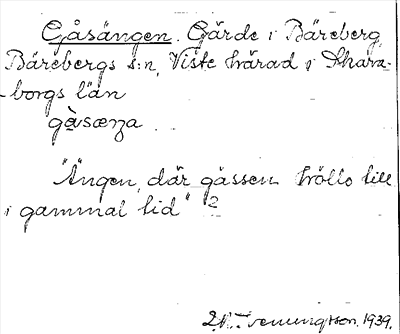 Gåsängen. Gärde i Bäreberg,
Bärebergs s:n, Viste härad i Skara-
borgs län
gåsæŋa
"Ängen, där gässen höllo till
i gammal tid" 2
1939.